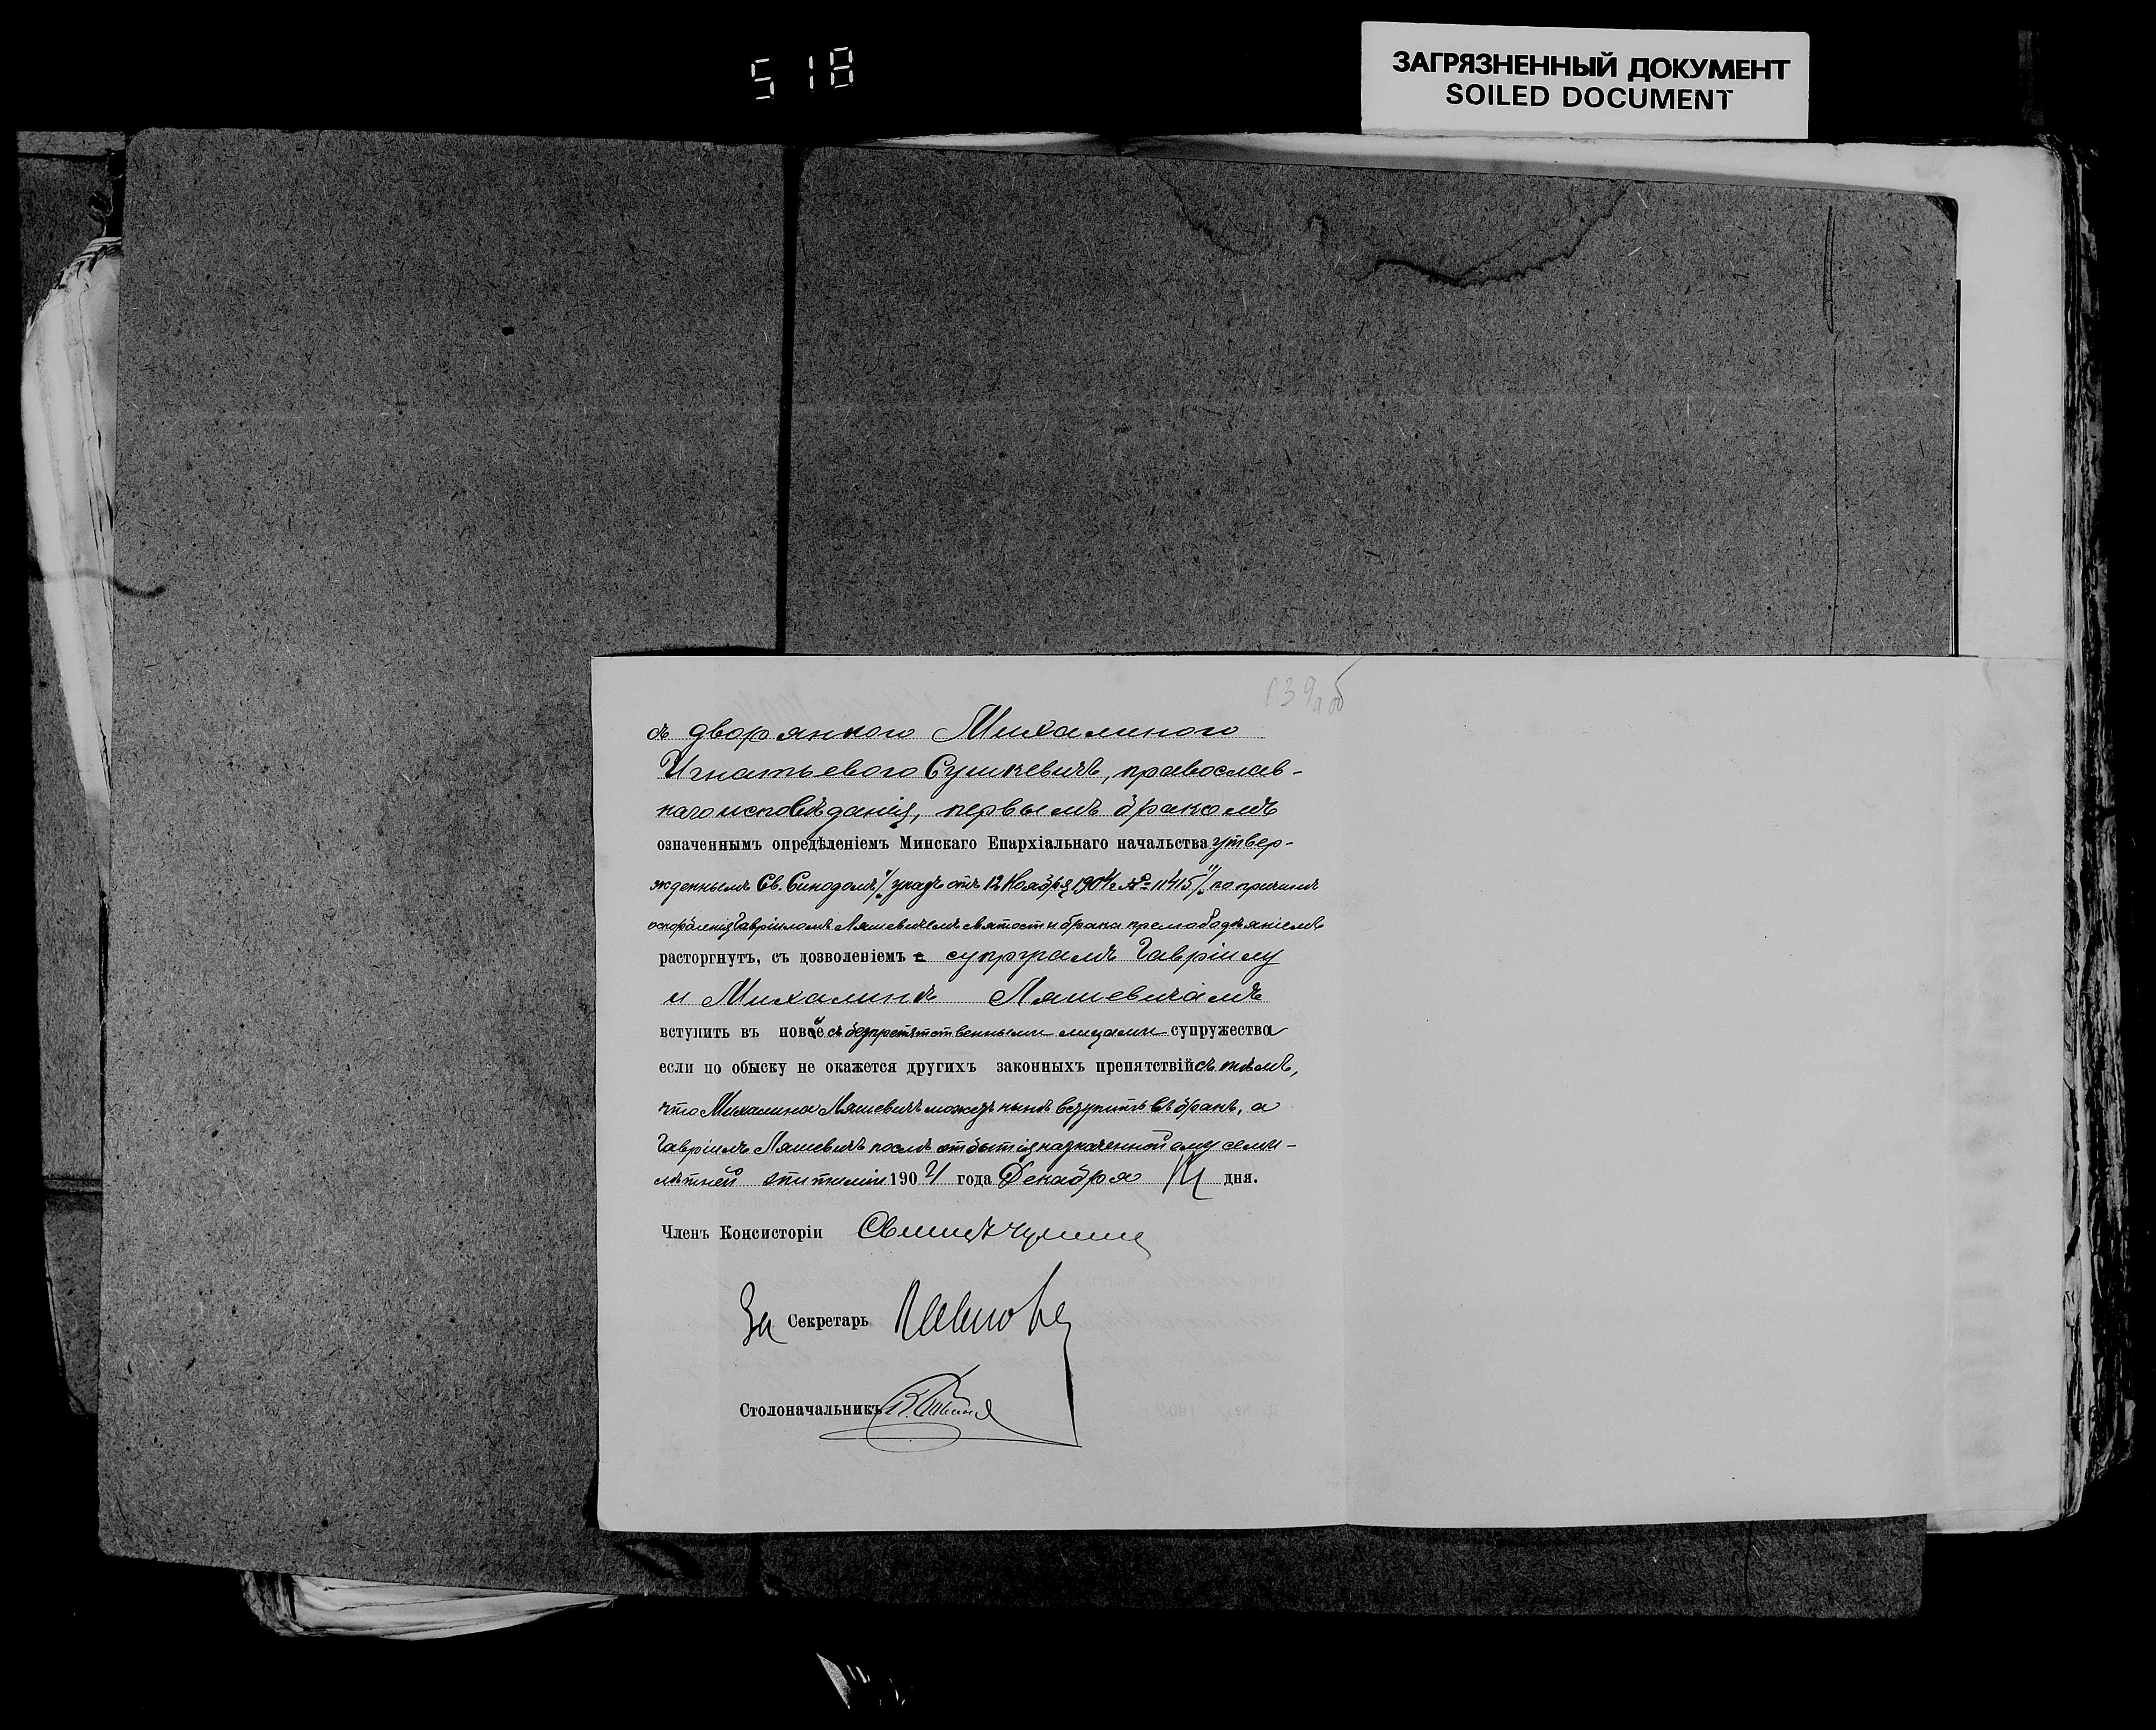 518
ЗАГРЯЗНЕННЫЙ ДОКУМЕНТ
SOILED DOCUMENT
139 об
съ дворянкою Михалиною
Игнатьевою Сушкевичъ, православ-
наго исповѣданія, первымъ бракомъ
означеннымъ опредѣленіемъ Минскаго Епархіальнаго начальства утвер-
жденнымъ Св. Синодомъ /указъ отъ 12 Ноября 1904 г. № 11415/, по причинѣ
оскорбленія Гавріиломъ Ляшевичемъ святости брака прелюбодѣяніемъ
расторгнутъ, съ дозволеніемъ супругамъ Гавріилу
и Михалинѣ Ляшевичамъ
вступить въ новое съ безпрепятственными лицами супружество
если по обыску не окажется другихъ законныхъ препятствій съ тѣмъ,
что Михалина Ляшевичъ можетъ нынѣ вступить въ бракъ, а
Гавріилъ Ляшевичъ послѣ отбытія назначенной ему семи-
лѣтней эпитиміи 1904 года Декабря дня.
Членъ Консисторіи
За Секретарь
Столоначальникъ